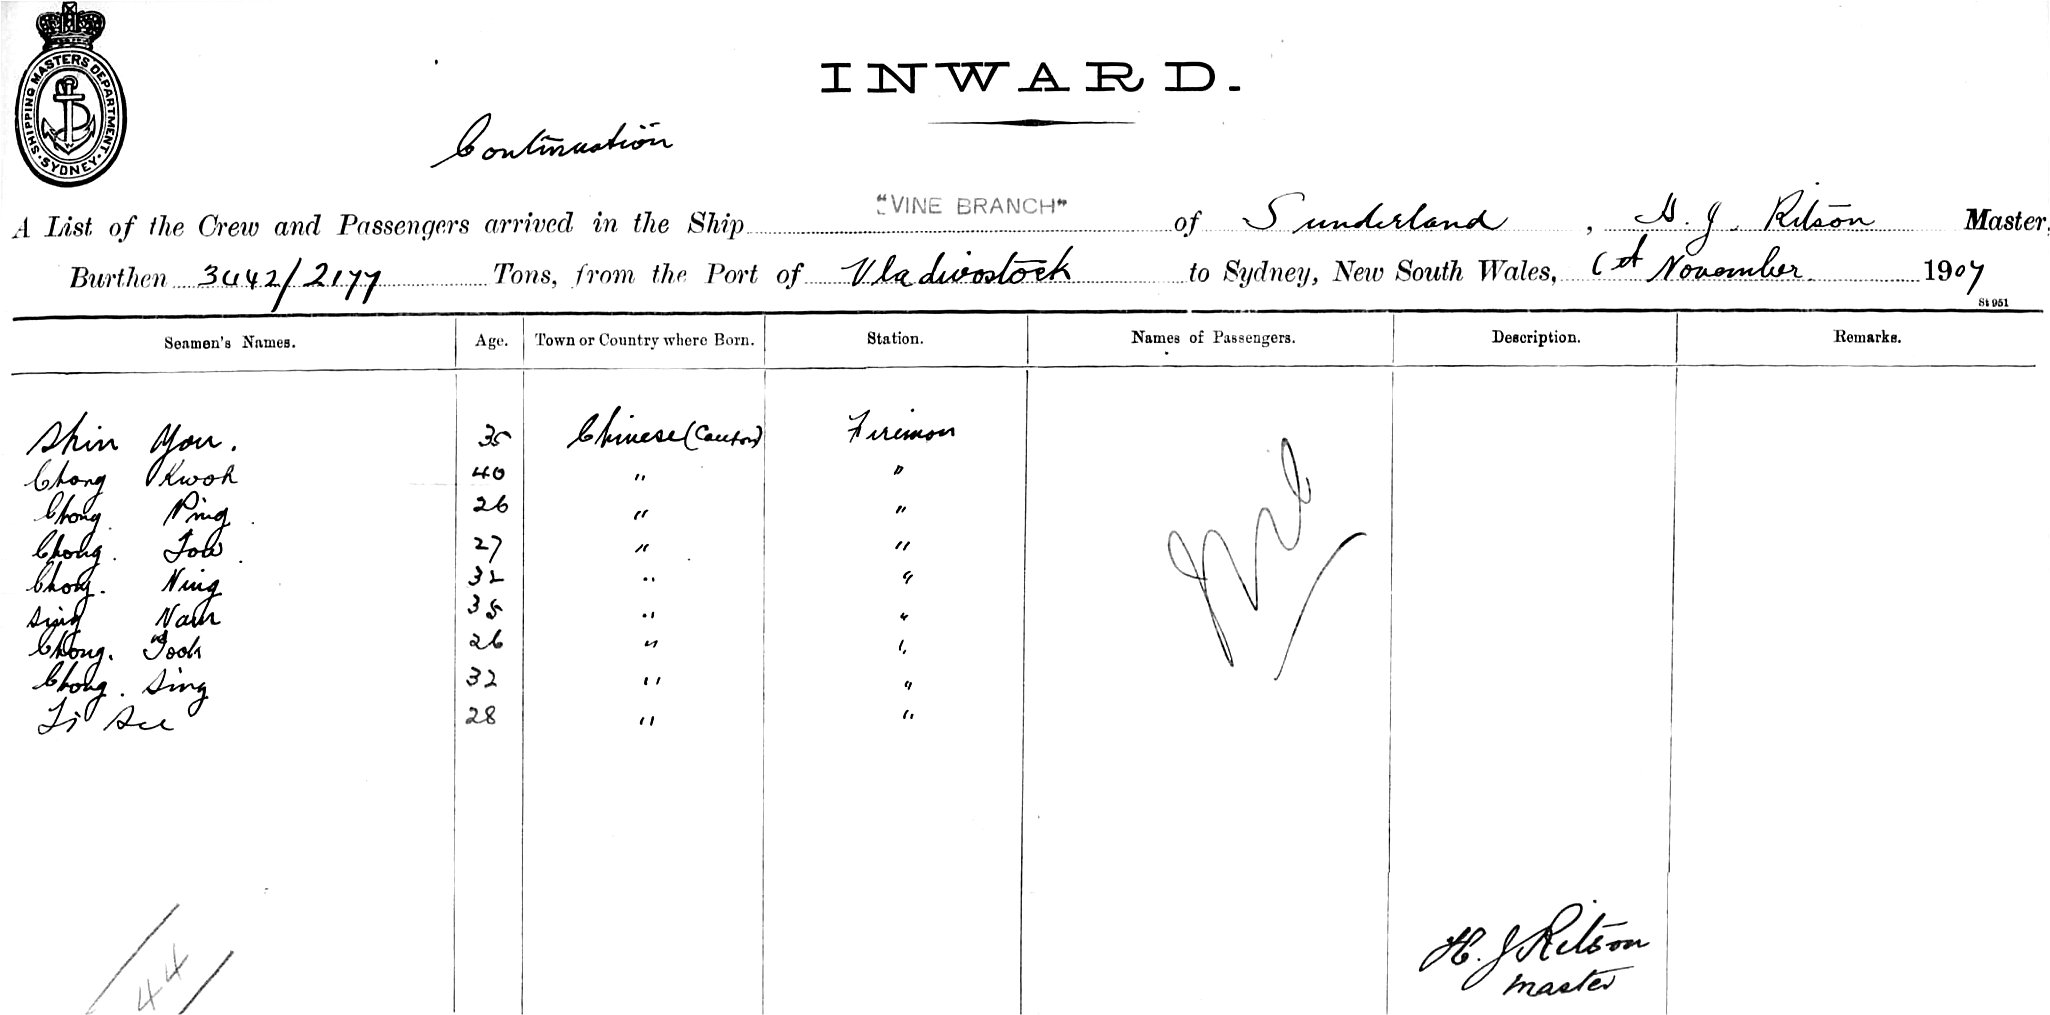 SHIPPING MASTERS DEPARTMENT · SYDNEY ·
INWARD.
Continuation
A List of the Crew and Passengers arrived in the Ship "VINE BRANCH" of Sunderland, H. J. Ritson Master,
Burthen 3442/2177 Tons, from the Port of Vladivostock to Sydney, New South Wales, 1st November 1907
St 951
Seamen's Names. Age. Town or Country where Born. Station. Names of Passengers. Description. Remarks.
Shin You. 35 Chinese (Canton) Fireman
Chong Kwok 40 " "
Chong Ping 26 " "
Chong. Tow 27 " "
Chong. Ning 32 " "
Sing Nam 35 " "
Chong. Took 26 " "
Chong. Sing 32 " "
Li See 28 " "
Nil
H. J Ritson
Master
44